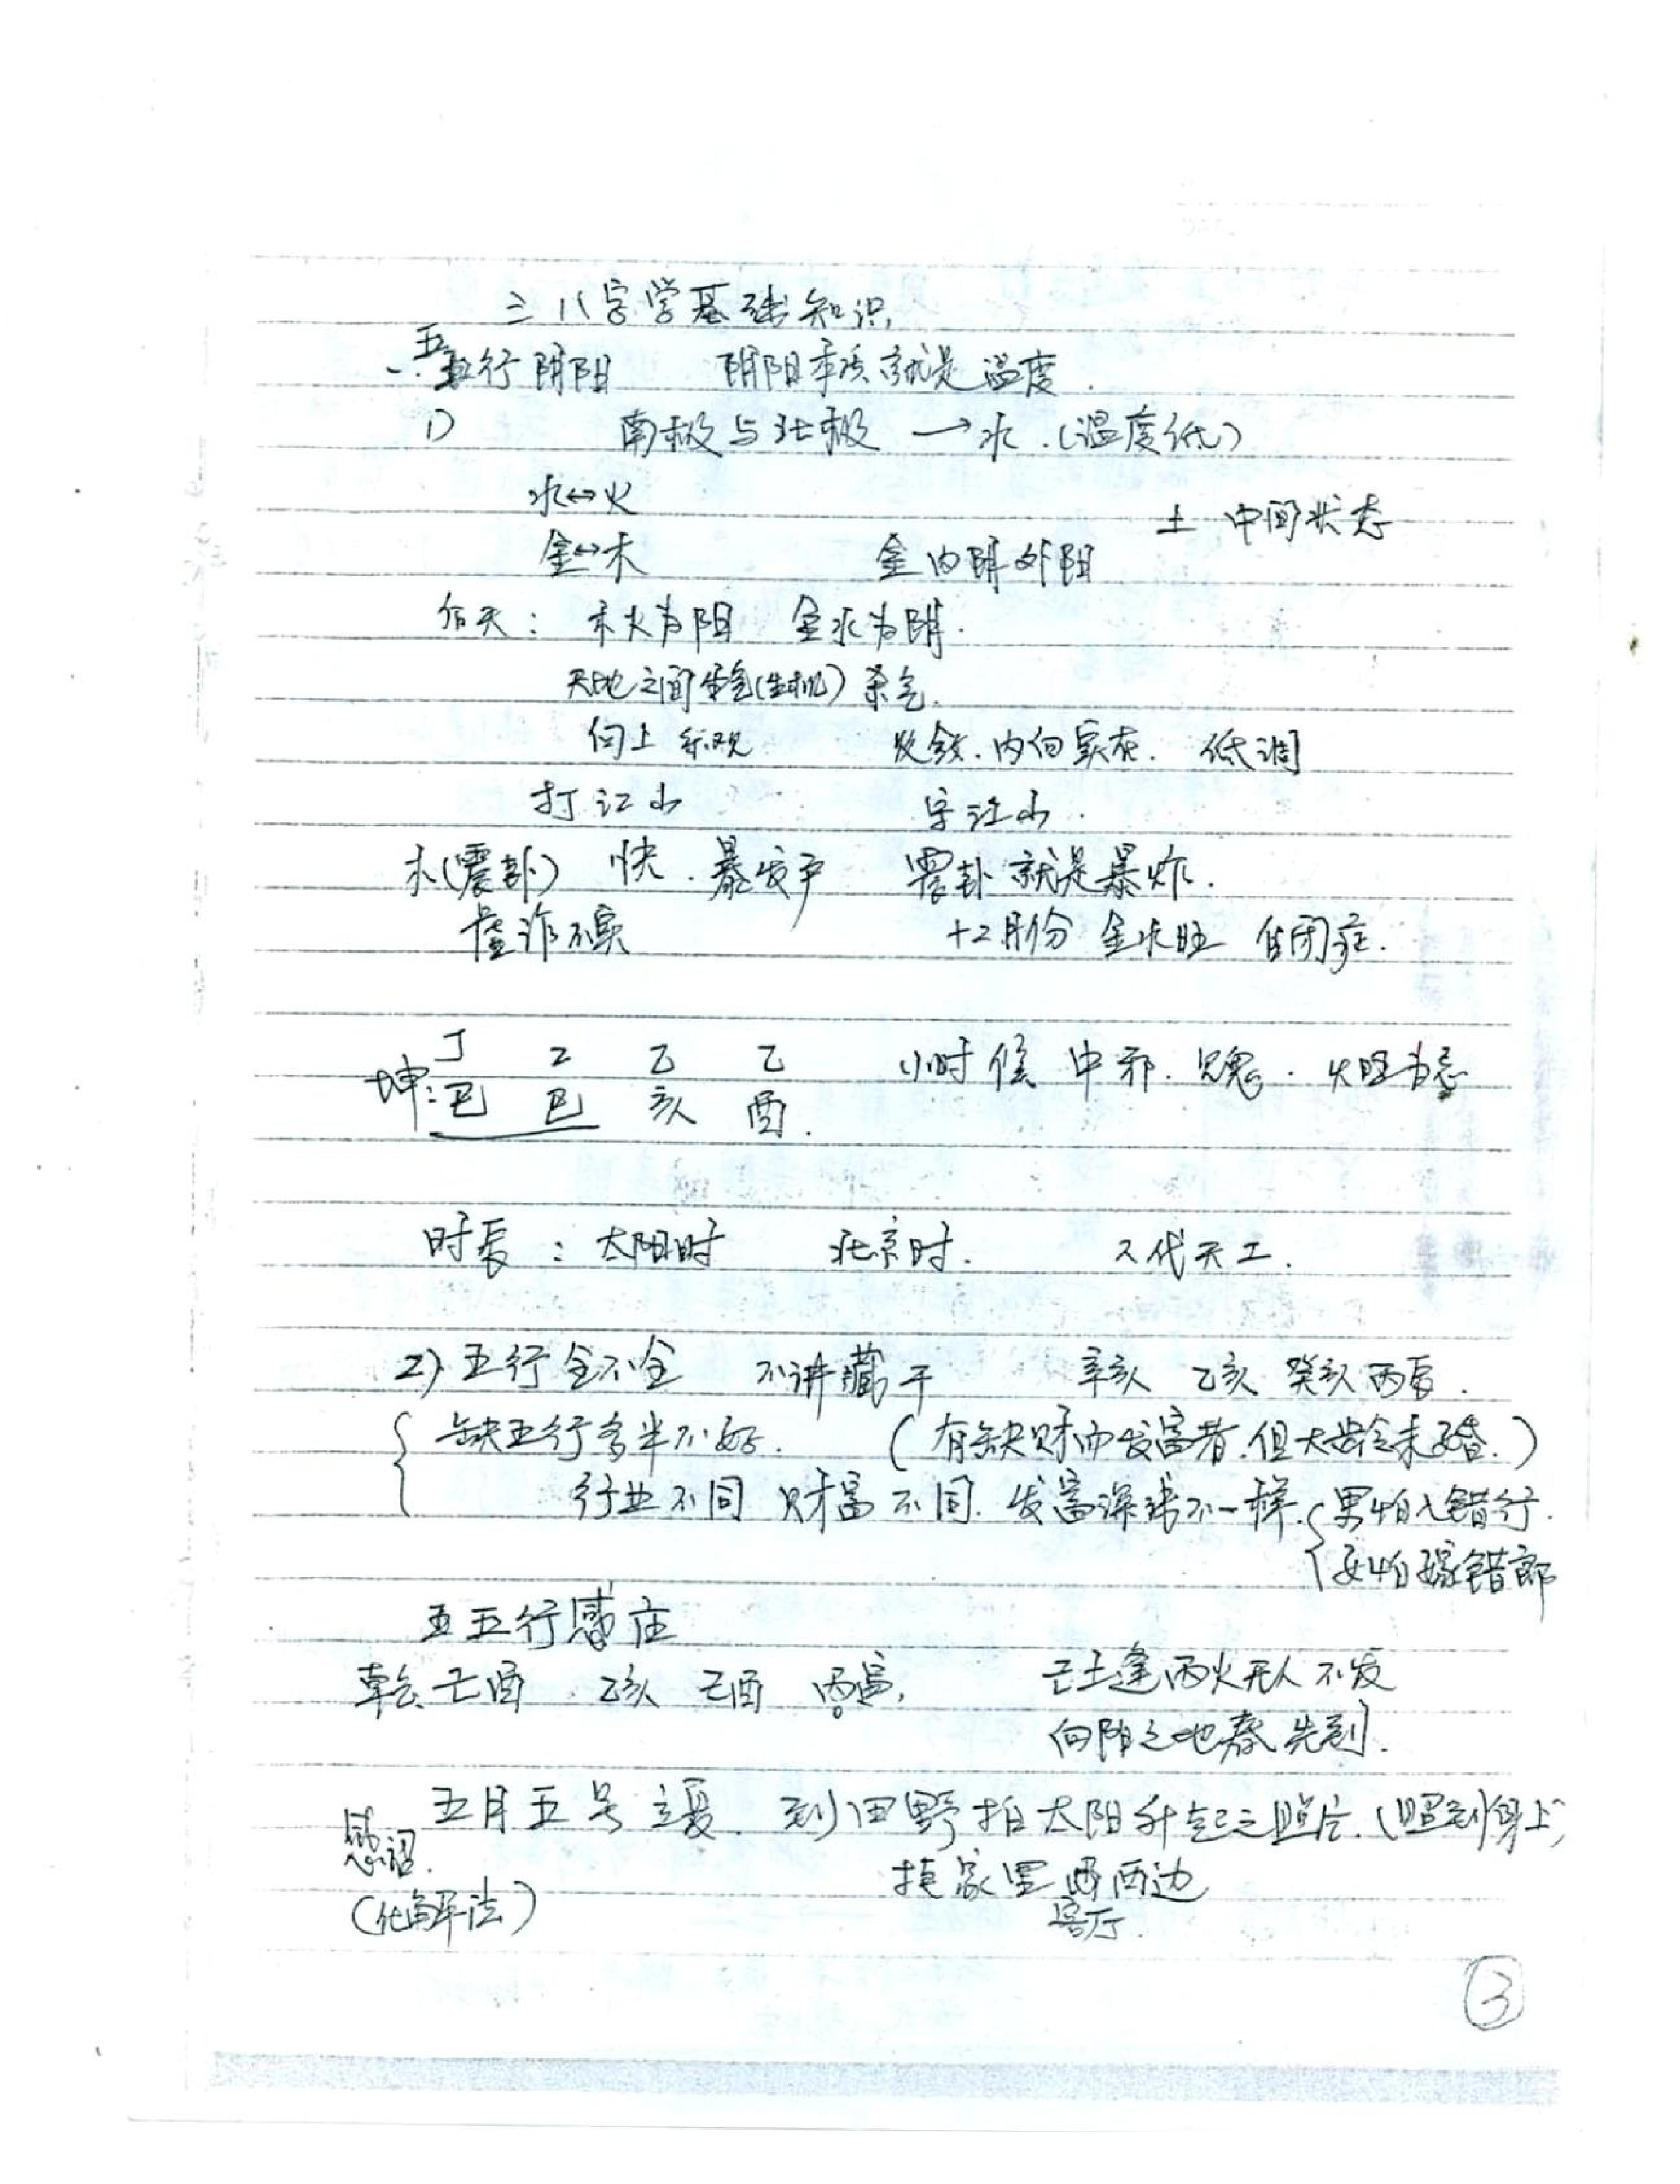 三 八字学基础知识
一.五行阴阳 阴阳本质就是温度.
1) 南极与北极 → 水.(温度低)
水↔火
土 中间状态
金↔木 金内阴外阳
后天: 木火为阳 金水为阴.
天地之间生气(生机) 杀气.
向上 乐观 收敛.内向实在. 低调
打江山 守江山.
木(震卦) 快.暴发户 震卦就是暴炸.
虚诈不实 十2月份 金水旺 自闭症.
丁 乙 乙 乙 小时候 中邪.见鬼. 火旺为忌
坤: 巳 巳 亥 酉.
时辰: 太阳时 北京时. 人代天工.
2) 五行全不全 不讲藏干 辛亥 乙亥 癸亥 丙辰.
缺五行多半不好. (有缺财而发富者.但大龄未婚.)
行业不同 财富不同. 发富深浅不一样. 男怕入错行.
女怕嫁错郎
五五行感应
乾: 己酉 乙亥 己酉 丙寅. 己土逢丙火无人不发
向阳之地春先到.
五月五号立夏. 到田野拍太阳升起之照片.(照到身上)
感召. 挂家里 西边
(化解法) 客厅.
3